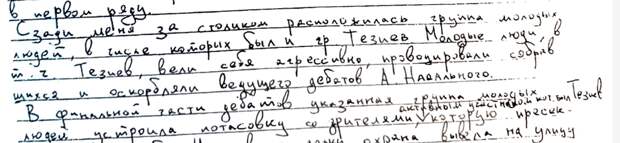 в первом ряду.
Сзади меня за столиком расположилась группа молодых
людей, в числе которых был и гр Тезиев Молодые люди, в
т. ч Тезиев, вели себя агрессивно, провоцировали собрав
шихся и оскорбляли ведущего дебатов А Навального.
В финальной части дебатов указанная группа молодых
активным участником кот. был Тезиев
людей устроила потасовку со зрителями, которую пресек.
охрана вывела на улицу